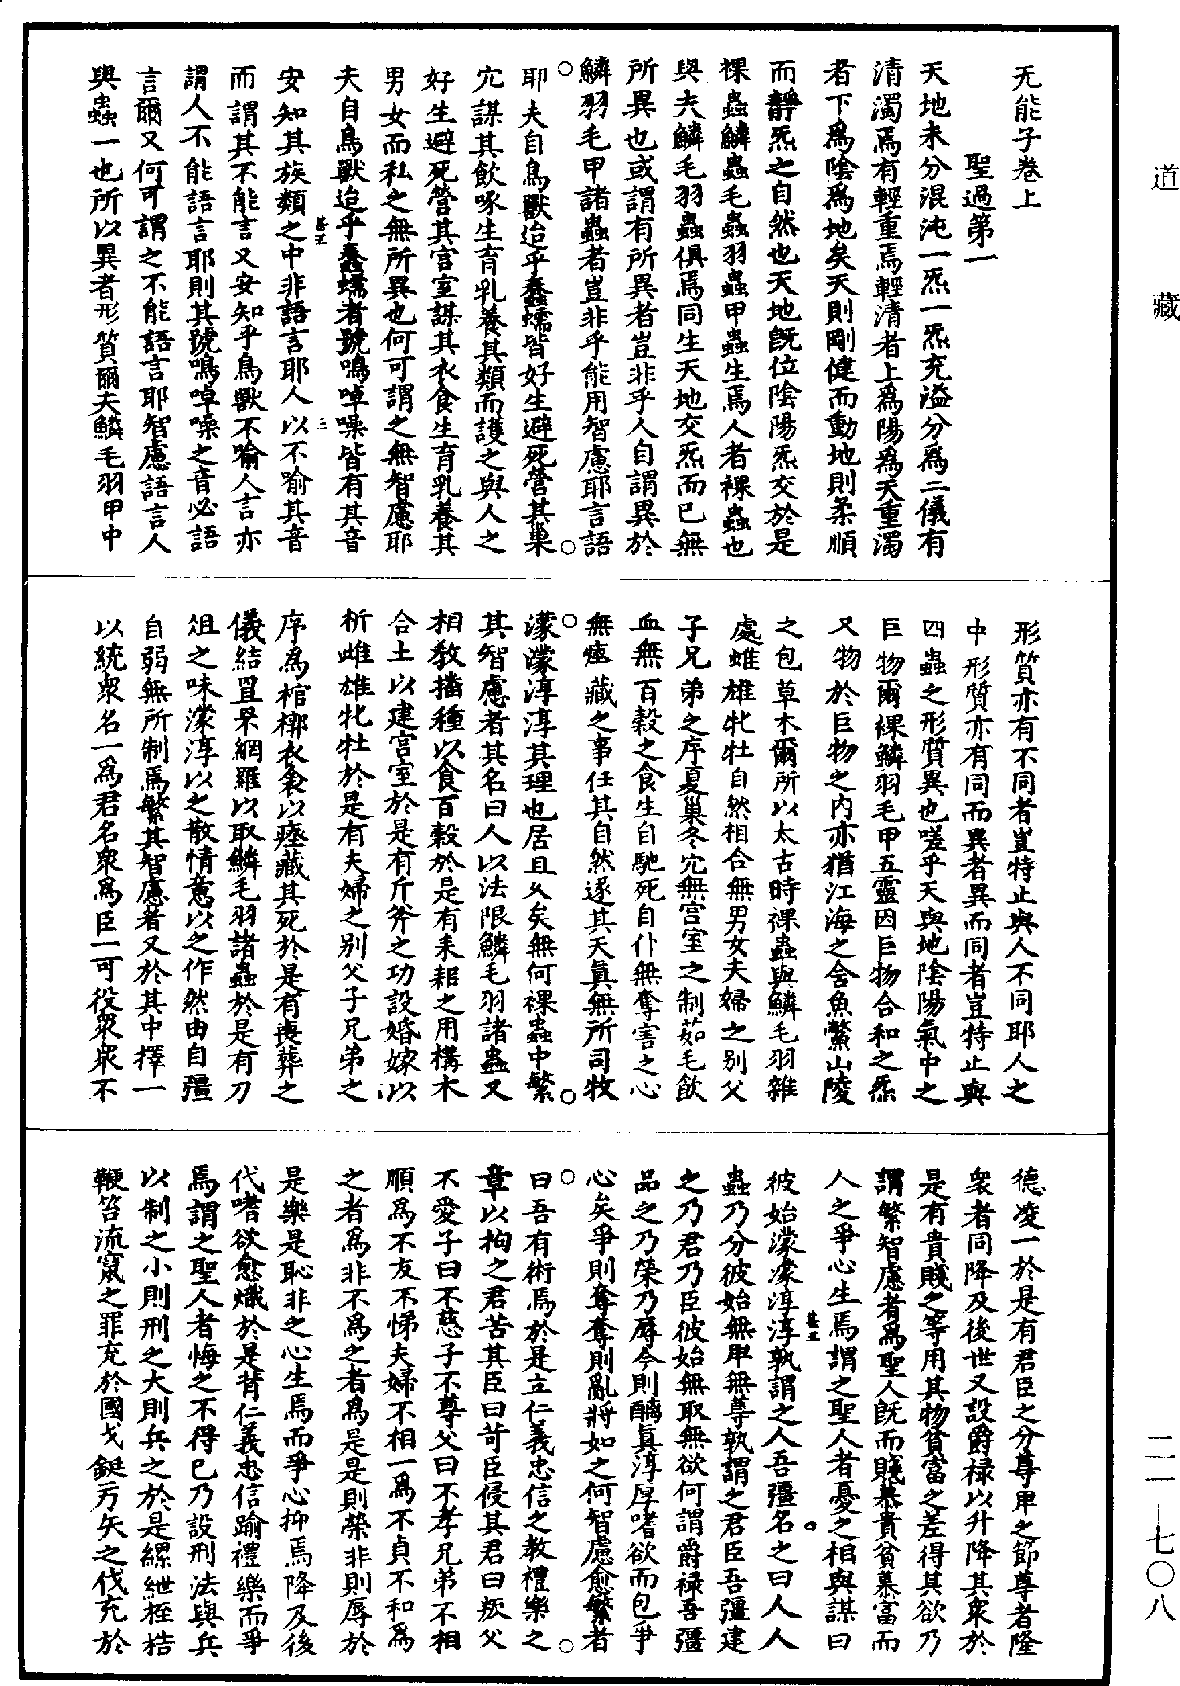 道藏
二一—七〇八
无能子卷上
聖過第一
天地未分混沌一炁一炁充溢分為二儀有
清濁焉有輕重焉輕清者上為陽為天重濁
者下為陰為地矣天則剛健而動地則柔順
而靜炁之自然也天地旣位陰陽炁交於是
裸蟲鱗蟲毛蟲羽蟲甲蟲生焉人者裸蟲也
與夫鱗毛羽蟲俱焉同生天地交炁而已無
所異也或謂有所異者豈非乎人自謂異於
鱗羽毛甲諸蟲者豈非乎能用智慮耶言語
耶夫自鳥獸迨乎蠢蠕皆好生避死營其巢
穴謀其飲啄生育乳養其類而護之與人之
好生避死營其宫室謀其衣食生育乳養其
男女而私之無所異也何可謂之無智慮耶
夫自鳥獸迨乎蠢蠕者號鳴啅噪皆有其音
安知其族類之中非語言耶人以不喻其音
而謂其不能言又安知乎鳥獸不喻人言亦
謂人不能語言耶則其號鳴啅噪之音必語
言爾又何可謂之不能語言耶智慮語言人
與蟲一也所以異者形質爾夫鱗毛羽甲中
形質亦有不同者豈特止與人不同耶人之
中形質亦有同而異者異而同者豈特止與
四蟲之形質異也嗟乎天與地陰陽氣中之
巨物爾裸鱗羽毛甲五靈因巨物合和之炁
又物於巨物之內亦猶江海之含魚鱉山陵
之包草木爾所以太古時裸蟲與鱗毛羽雜
處雌雄牝牡自然相合無男女夫婦之別父
子兄弟之序夏巢冬穴無宫室之制茹毛飲
血無百穀之食生自馳死自仆無奪害之心
無瘞藏之事任其自然遂其天真無所司牧
濛濛淳淳其理也居且乆矣無何裸蟲中繁
其智慮者其名曰人以法限鱗毛羽諸蟲又
相教播種以食百穀於是有耒耜之用構木
合土以建宫室於是有斤斧之功設婚嫁以
析雌雄牝牡於是有夫婦之别父子兄弟之
序為棺槨衣衾以瘞藏其死於是有喪葬之
儀結罝罘網羅以取鱗毛羽諸蟲於是有刀
俎之味濛淳以之散情意以之作然由自彊
自弱無所制焉繁其智慮者又於其中擇一
以統衆名一為君名衆為臣一可役衆衆不
德凌一於是有君臣之分尊卑之節尊者隆
衆者同降及後世又設爵禄以升降其衆於
是有貴賤之等用其物貧富之差得其欲乃
謂繁智慮者為聖人旣而賤慕貴貧慕富而
人之爭心生焉謂之聖人者憂之相與謀曰
彼始濛濛淳淳孰謂之人吾彊名之曰人人
蟲乃分彼始無卑無尊孰謂之君臣吾彊建
之乃君乃臣彼始無取無欲何謂爵禄吾彊
品之乃榮乃辱今則醨真淳厚嗜欲而包爭
心矣爭則奪奪則亂將如之何智慮愈繁者
曰吾有術焉於是立仁義忠信之教禮樂之
章以拘之君苦其臣曰苛臣侵其君曰叛父
不愛子曰不慈子不尊父曰不孝兄弟不相
順為不友不悌夫婦不相一為不貞不和為
之者為非不為之者為是是則榮非則辱於
是樂是恥非之心生焉而爭心抑焉降及後
代嗜欲愈熾於是背仁義忠信踰禮樂而爭
焉謂之聖人者悔之不得已乃設刑法與兵
以制之小則刑之大則兵之於是縲紲桎梏
鞭笞流竄之罪充於國戈鋋弓矢之伐充於